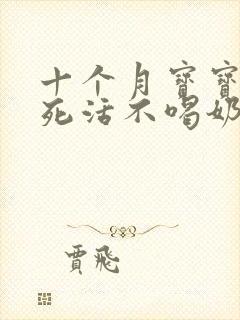 十个月宝寳
死活不喝奶
贾飛